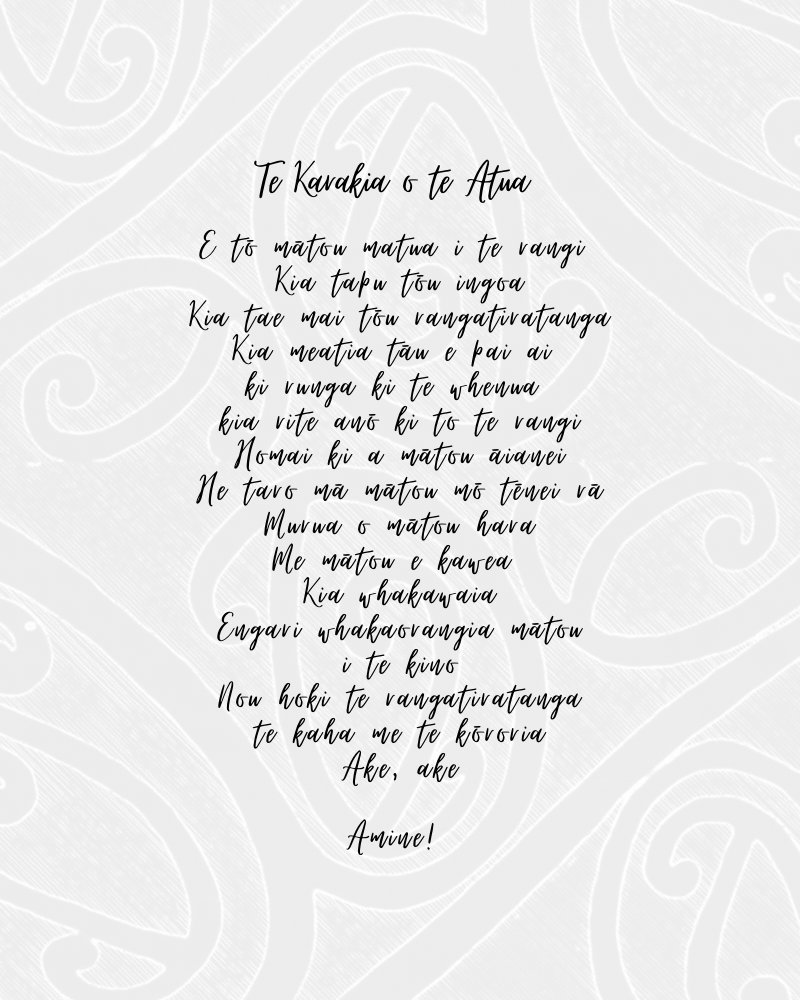 Te Karakia o te Atua
E tō mātou matua i te rangi
Kia tapu tōu ingoa
Kia tae mai tōu rangatiratanga
Kia meatia tāu e pai ai
ki runga ki te whenua
kia rite anō ki to te rangi
Homai ki a mātou āianei
He taro mā mātou mō tēnei rā
Murua o mātou hara
Me mātou e kawea
Kia whakawaia
Engari whakaorangia mātou
i te kino
Nou hoki te rangatiratanga
te kaha me te kōroria
Ake, ake
Amine!